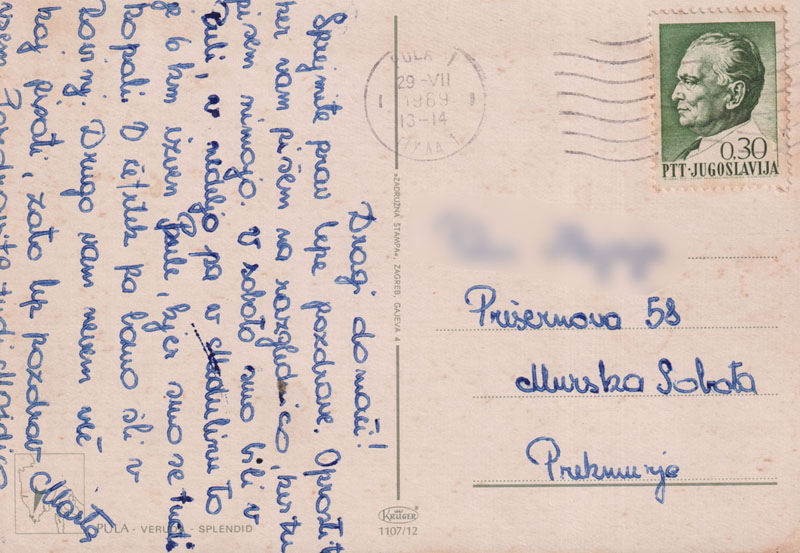 Dragi domači!
Sprejmite prav lepe pozdrave. Oprostit
ker vam pišem na razglednico, ker tu
pisem nimajo. V soboto smo bili v
Puli, v nedeljo pa v Medulinu to
je 6 km izven Pule, kjer smo se tudi
kopali. V četrtek pa bomo šli v
Rovinj. Drugo vam nevem več
kaj pisati, zato lep pozdrav Marta
Pozdravite tudi
PULA - VERUDA - SPLENDID
»ZADRUŽNA ŠTAMPA«, ZAGREB, GAJEVA 4
KRÜGER
1107/12
PULA 1
29-VII
1969
13-14
0.30
PTT·JUGOSLAVIJA
Prešernova 58
Murska Sobota
Prekmurje